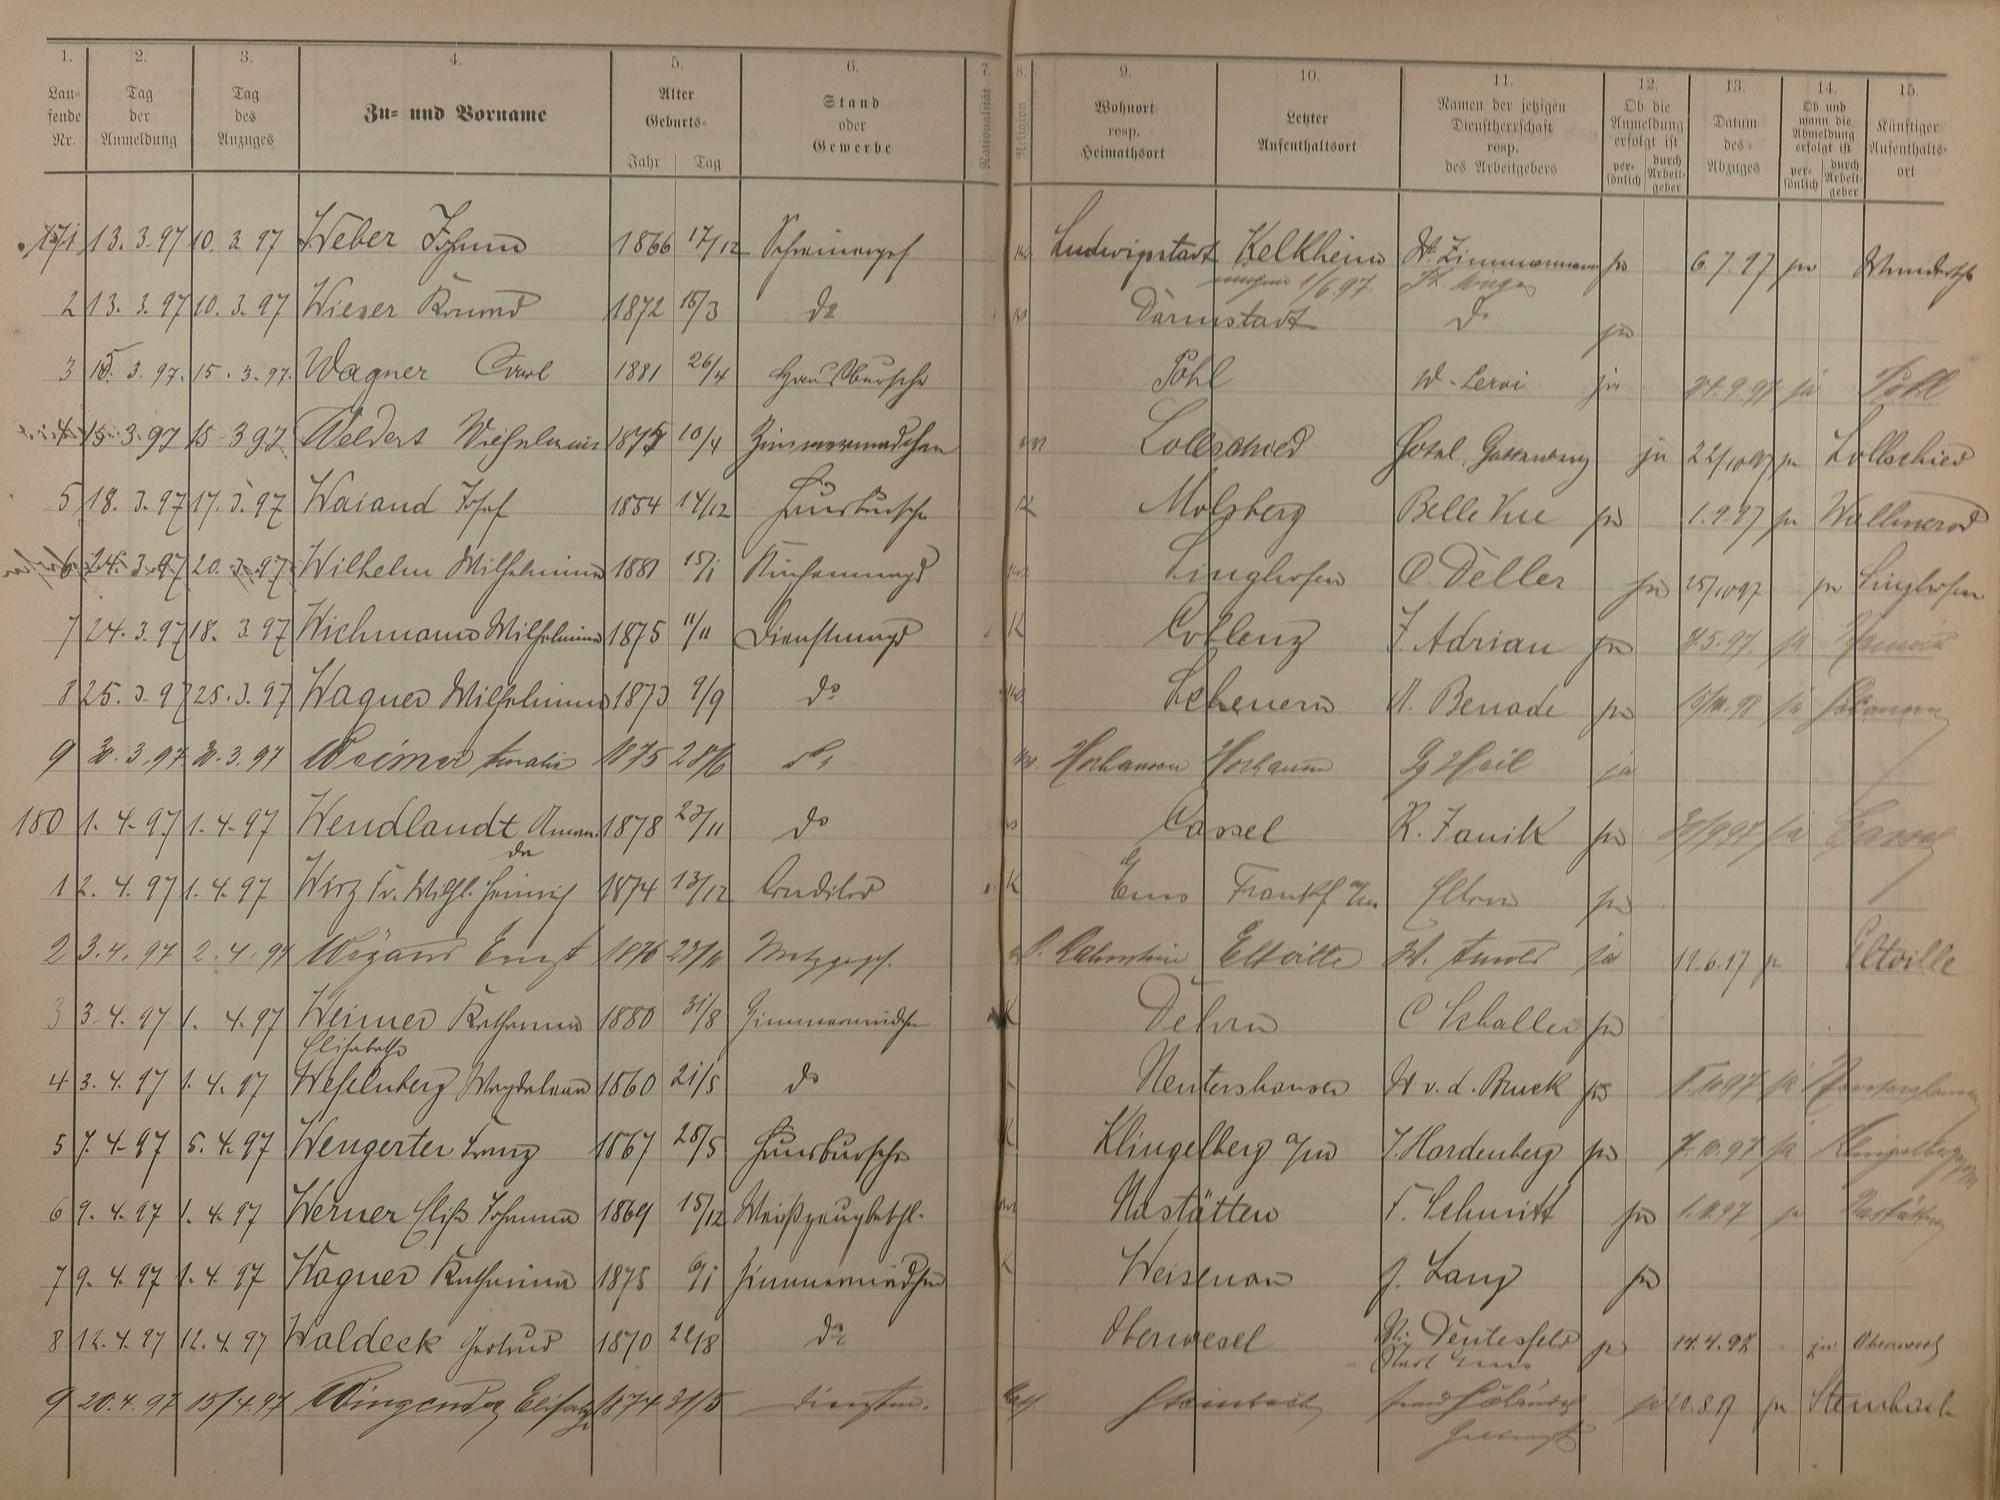 1. 2. 3. 4. 5. 6. 7. 8. 9. 10. 11. 12. 13. 14. 15.
Laufende Nr. Tag der Anmeldung Tag des Anzuges Zu- und Vorname Alter Geburts- Jahr Tag Stand oder Gewerbe Nationalität Religion Wohnort resp. Heimathsort Letzter Aufenthaltsort Namen der jetzigen Dienstherrschaft resp. des Arbeitgebers Ob die Anmeldung erfolgt ist persönlich durch Arbeitgeber Datum des Abzuges Ob und wann die Abmeldung erfolgt ist persönlich durch Arbeitgeber Künftiger Aufenthaltsort
171 13. 3. 97 10. 3. 97 Weber Johann 1866 17/12 Schreinerges Ludwigstadt Kelkheim W. Zimmermann ja 6. 7. 97 ja
2 13. 3. 97 10. 3. 97 Wieser Konrad 1872 15/3 do Darmstadt do ja
3 15. 3. 97. 15. 3. 97. Wagner Carl 1881 26/4 Hausbursche Pohl W. Leroi ja 24. 9. 97 ja Pohl
4 15. 3. 97 15. 3 97 Weldert Wilhelmine 1875 10/4 Zimmermädchen Lollschied Hotel ja 22/10 97 ja Lollschied
5 18. 3. 97 17. 3. 97 Waiand Josef 1884 14/12 Hausbursche K Molsberg Belle Vue ja 1. 9. 97 ja Wallmerod
6 24. 3. 97 20. 3. 97 Wilhelm Wilhelmine 1881 15/1 Küchenmagd Singhofen C. Deller ja 25/10 97 ja Singhofen
7 24. 3. 97 18. 3. 97 Wichmann Wilhelmine 1875 11/11 Dienstmagd K Coblenz J. Adrian ja 8. 5. 97. ja
8 25. 3. 97 25. 3. 97 Wagner Wilhelmine 1873 9/9 do Scheuern A. Benade ja ja
9 30. 3. 97 30. 3. 97 Weimer Amalie 1875 28/6 do Gg Heil ja
180 1. 4. 97 1. 4. 97 Wendlandt Anna 1878 23/11 do Cassel K. Janik ja ja Cassel
1 2. 4. 97 1. 4. 97 Wirz Fr. Wilhl. Heinrich 1874 13/12 Conditor K Ems Frankf a/m Eltern ja
2 3. 4. 97 2. 4. 97 Ernst 1876 Metzgerges. Eltville W. Arnold ja 19. 6. 97 ja Eltville
3 3. 4. 97 1. 4. 97 Weimer Katharina 1880 31/8 Zimmermädchen K Dehrn C Schaller ja
Elisabeth
4 3. 4. 97 1. 4. 97 Weselnberg Magdalena 1860 21/5 do Nentershausen W v. d. Bruck ja ja Nentershausen
5 7. 4. 97 5. 4. 97 Wengerter Franz 1867 25/5 Hausbursche K Klingelberg a/m J. Hardenberg ja 7. 10. 97 ja
6 9. 4. 97 1. 4. 97 Werner Elis Johanna 1869 15/12 Weißzeugbeschl. Nastätten F. Schmitt ja ja Nastätten
7 9. 4. 97 1. 4. 97 Wagner Katharina 1875 6/1 Zimmermädchen K Weisenau J. Lang ja
8 12. 4. 97 12. 4. 97 Waldeck Gertrud 1870 do Oberwesel Deutesfeld ja 14. 4. 97 ja Oberwesel
Stadt Ems
9 20. 4. 97 15/4. 97 Wingender Elisabeth 1874 31/5 Dienstm. Steinbach ja 10. 8. 97 ja Steinbach